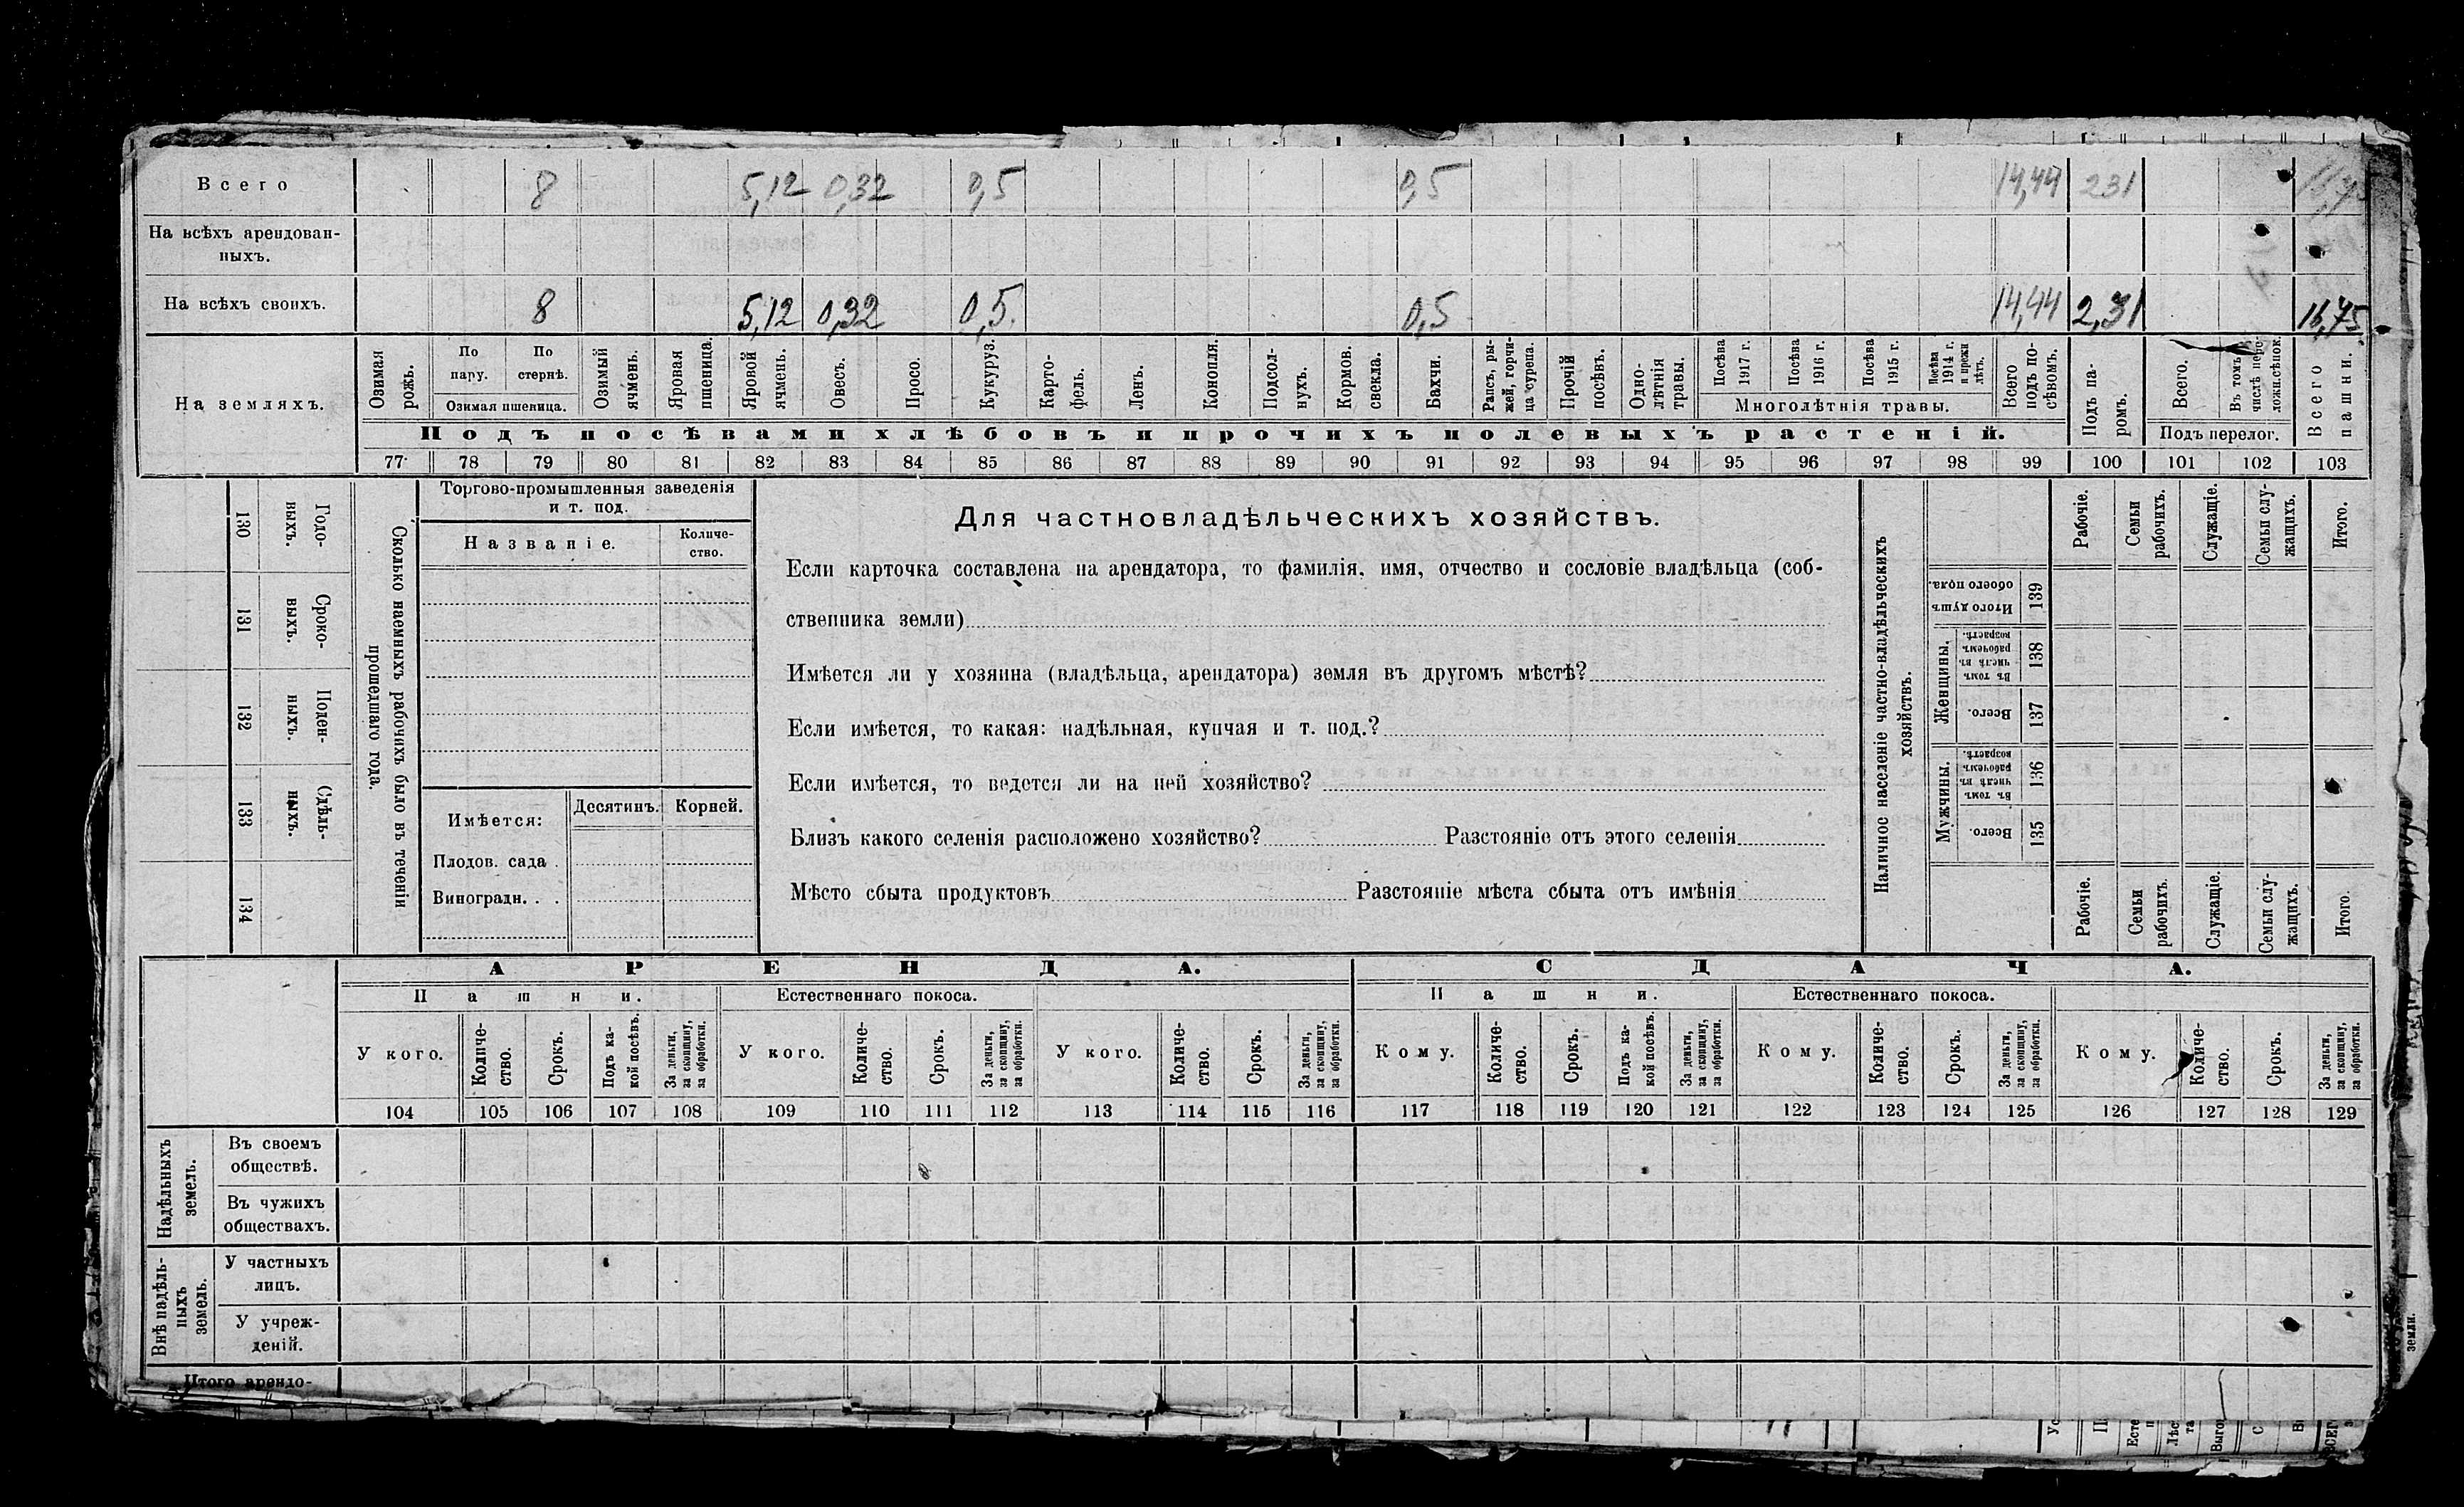 Всего 8 5,12 0,32 0,5 0,5 14,44 231
На всѣхъ арендован-
ныхъ.
На всѣхъ своихъ. 8 5,12 0,32 0,5 0,5 14,44 2,31 16,75
На земляхъ.
Озимая рожь.
По пару.
По стернѣ.
Озимая пшеница.
Озимый ячмень.
Яровая пшеница.
Яровой ячмень.
Овесъ.
Просо.
Кукуруз.
Карто-фель.
Ленъ.
Конопля.
Подсол-нухъ.
Кормов. свекла.
Бахчи.
Рапсъ, ры-жей, горчи-ца сурепа.
Прочій посѣвъ.
Одно-лѣтнія травы.
Посѣва 1917 г.
Посѣва 1916 г.
Посѣва 1915 г.
Посѣва 1914 г. и прежн лѣтъ.
Многолѣтнія травы.
Всего подъ по-сѣвомъ.
Подъ па-ромъ.
Всего.
Въ томъ числѣ
Подъ перелог.
Всего пашни.
Подъ посѣвами хлѣбовъ и прочихъ полевыхъ растеній.
77 78 79 80 81 82 83 84 85 86 87 88 89 90 91 92 93 94 95 96 97 98 99 100 101 102 103
130 Годо-ныхъ.
131 Сроко-выхъ.
132 Поден-ныхъ.
133 Сдѣль-ныхъ.
134
Сколько наемныхъ рабочихъ было въ теченіи
прошедшаго года.
Торгово-промышленныя заведенія
и т. под.
Названіе.
Количе-ство.
Имѣется:
Десятинъ.
Корней.
Плодов. сада .
Виноградн. . .
Для частновладѣльческихъ хозяйствъ.
Если карточка составлена на арендатора, то фамилія, имя, отчество и сословіе владѣльца (соб-
ственника земли)
Имѣется ли у хозяина (владѣльца, арендатора) земля въ другомъ мѣстѣ?
Если имѣется, то какая: надѣльная, купчая и т. под.?
Если имѣется, то ведется ли на ней хозяйство?
Близъ какого селенія расположено хозяйство? Разстояніе отъ этого селенія
Мѣсто сбыта продуктовъ Разстояніе мѣста сбыта отъ имѣнія
Наличное населеніе частно-владѣльческихъ
хозяйствъ.
Рабочіе.
Семьи рабочихъ.
Служащіе.
Семьи слу-жащихъ.
Итого.
139 Итого душъ обоего пола.
Женщины.
138 Въ томъ числѣ въ рабочемъ возрастѣ.
137 Всего.
Мужчины.
136 Въ томъ числѣ въ рабочемъ возрастѣ.
135 Всего.
Рабочіе.
Семьи рабочихъ.
Служащіе.
Семьи слу-жащихъ.
Итого.
АРЕНДА.
СДАЧА.
Пашни.
Естественнаго покоса.
Пашни.
Естественнаго покоса.
У кого.
Количе-ство.
Срокъ.
Подъ ка-кой посѣвъ.
За деньги, за скопщину, за обработки.
У кого.
Количе-ство.
Срокъ.
За деньги, за скопщину, за обработки.
У кого.
Количе-ство.
Срокъ.
За деньги, за скопщину, за обработки.
Кому.
Количе-ство.
Срокъ.
Подъ ка-кой посѣвъ.
За деньги, за скопщину, за обработки.
Кому.
Количе-ство.
Срокъ.
За деньги, за скопщину, за обработки.
Кому.
Количе-ство.
Срокъ.
За деньги, за скопщину, за обработки.
104 105 106 107 108 109 110 111 112 113 114 115 116 117 118 119 120 121 122 123 124 125 126 127 128 129
Надѣльныхъ земель.
Въ своемъ
обществѣ.
Въ чужихъ
обществахъ.
Внѣ надѣль-ныхъ земель.
У частныхъ
лицъ.
У учреж-
деній.
Итого арендо-
земли.